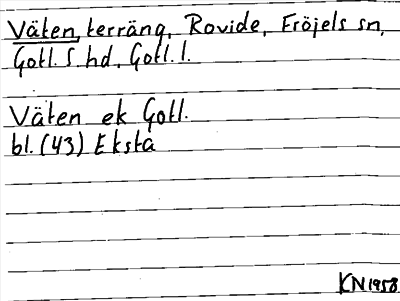 Väten, terräng, Rovide, Eröjels sn,
Gotl. S. hd, Gotl. l.
Väten ek Gotl.
bl. (43) Eksta
KN 1958